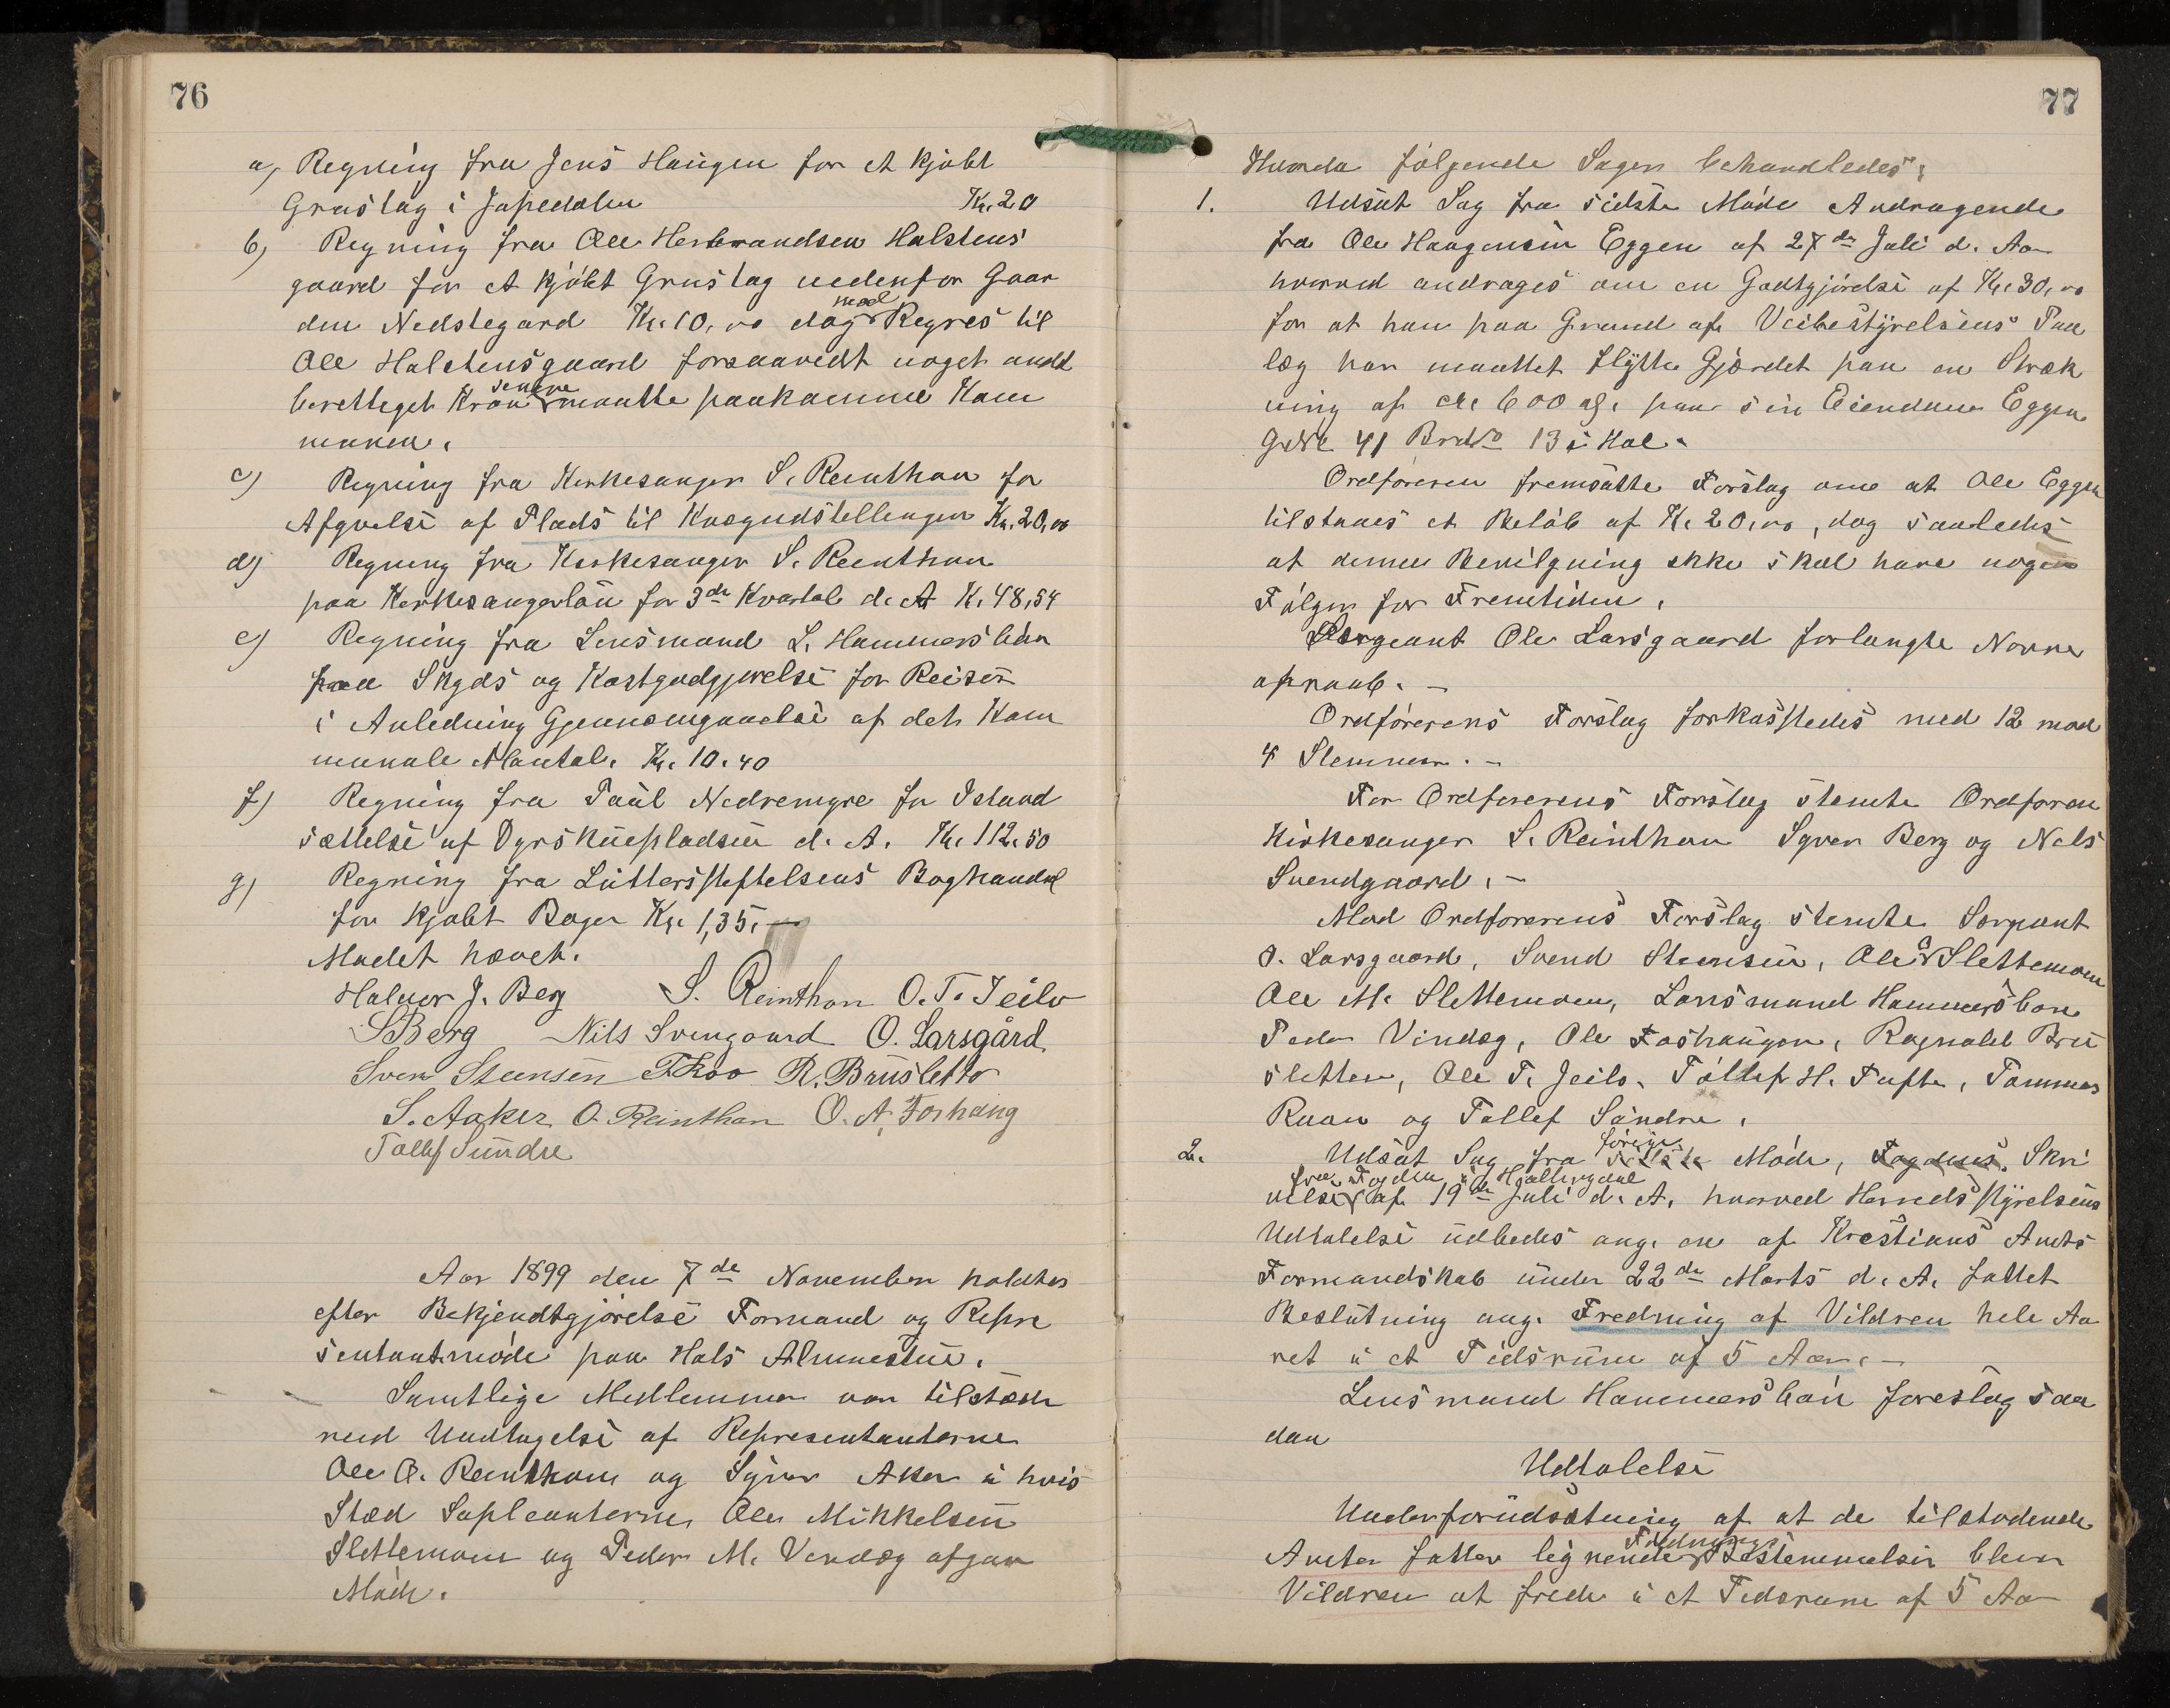 76
a) Regning fra Jens Haugen for et kjøbt
Grustag i Kr. 20
b) Regning fra Ole Herbrandsen Halstens
gaard for et kjøbt Grustag nedenfor Gaar
den Nedstegard Kr. 10,00 dog mod Regres til
Ole Halstensgaard forsaavidt noget andet
berettiget Krav senere maatte paakomme Kom
munen.
c) Regning fra Kirkesanger S. Reinthon for
Afgivelse af Plads til Kvægudstellingen Kr. 20,00
d) Regning fra Kirkesanger S. Reinthon
paa Kirkesangerløn for 3de Kvartal d. A Kr. 48,54
e) Regning fra Lensmand L. Hammersbøn
paa Skyds og Kostgodtgjørelse for Reiser
i Anledning Gjennemgaaelse af det Kom
munale Mantal. Kr. 10.40
f) Regning fra Paul Nedremyre for Istand
sættelse af Dyrskuepladsen d. A. Kr. 112.50
g) Regning fra Lutterstiftelsens Boghandel
for kjøbt Bøger Kr. 1,35. —
Mødet hævet.
Halvor J. Berg S. Reinthon O. T. Jeilo
SBerg Nils Svengaard O. Larsgård
Sven Steensen TRoo R. Brusletto
S. Aaker O. Reinthon O. A. Foshaug
Tollef Sundre
Aar 1899 den 7de November holdtes
efter Bekjendtgjørelse Formand og Repre
sentantmøde paa Hols Almuestue.
Samtlige Medlemmer var tilstæde
med Undtagelse af Representanterne
Ole O. Reinthon og Syver Aker i hvis
Sted Supleanterne Ole Mikkelsen
Slettemoen og Peder M. Vindeg afgav
Møde.
77
Hvorda følgende Sager behandledes:
1. Udsat Sag fra sidste Møde Andragende
fra Ole Haagensen Eggen af 27de Juli d. Aa
hvorved andrages om en Godtgjørelse af Kr. 30,00
for at han paa Grund af Veibestyrelsens Paa
læg har maattet flytte Gjærdet paa en Stræk
ning af ca. 600 al. paa sin Eiendom Eggen
GrNo 41 BrNo 13 i Hol.
Ordføreren fremsatte Forslag om at Ole Eggen
tilstaaes et Beløb af Kr. 20,00, dog saaledes
at denne Bevilgning ikke skal have nogen
Følger for Fremtiden.
Sergeant Ole Larsgaard forlangte Navne
opraab. —
Ordførerens Forslag forkastedes med 12 mod
4 Stemmer. —
For Ordførerens Forslag stemte Ordføren
Kirkesanger S. Reinthon Syver Berg og Nels
Svendgaard. —
Mod Ordførerens Forslag stemte Sergeant
O. Larsgaard, Svend Steensen, Ole A Slettemoen
Ole M. Slettemoen, Lensmand Hammersbøn
Peder Vindeg, Ole Foshaugen, Ragnvald Bru
sletten, Ole T. Jeilo, Tollef H. Tufte, Tommas
Raaen og Tollef Sundre.
2. Udsat Sag fra forrige sidste Møde, Fogdens Skri
velse fra Fogden i Hallingdal af 19de Juli d. A. hvorved Herredsstyrelsens
Udtalelse udbedes ang. en af Kristians Amts
Formandskab under 22de Marts d. A. fattet
Beslutning ang. Fredning af Vildren hele Aa
ret i et Tidsrum af 5 Aar. —
Lensmand Hammersbøn foreslog saa
dan
Udtalelse
Underforudsætning af at de tilstødende
Amter fatter lignende Fredningsbestemmelser blev
Vildren at frede i et Tidsrum af 5 Aa